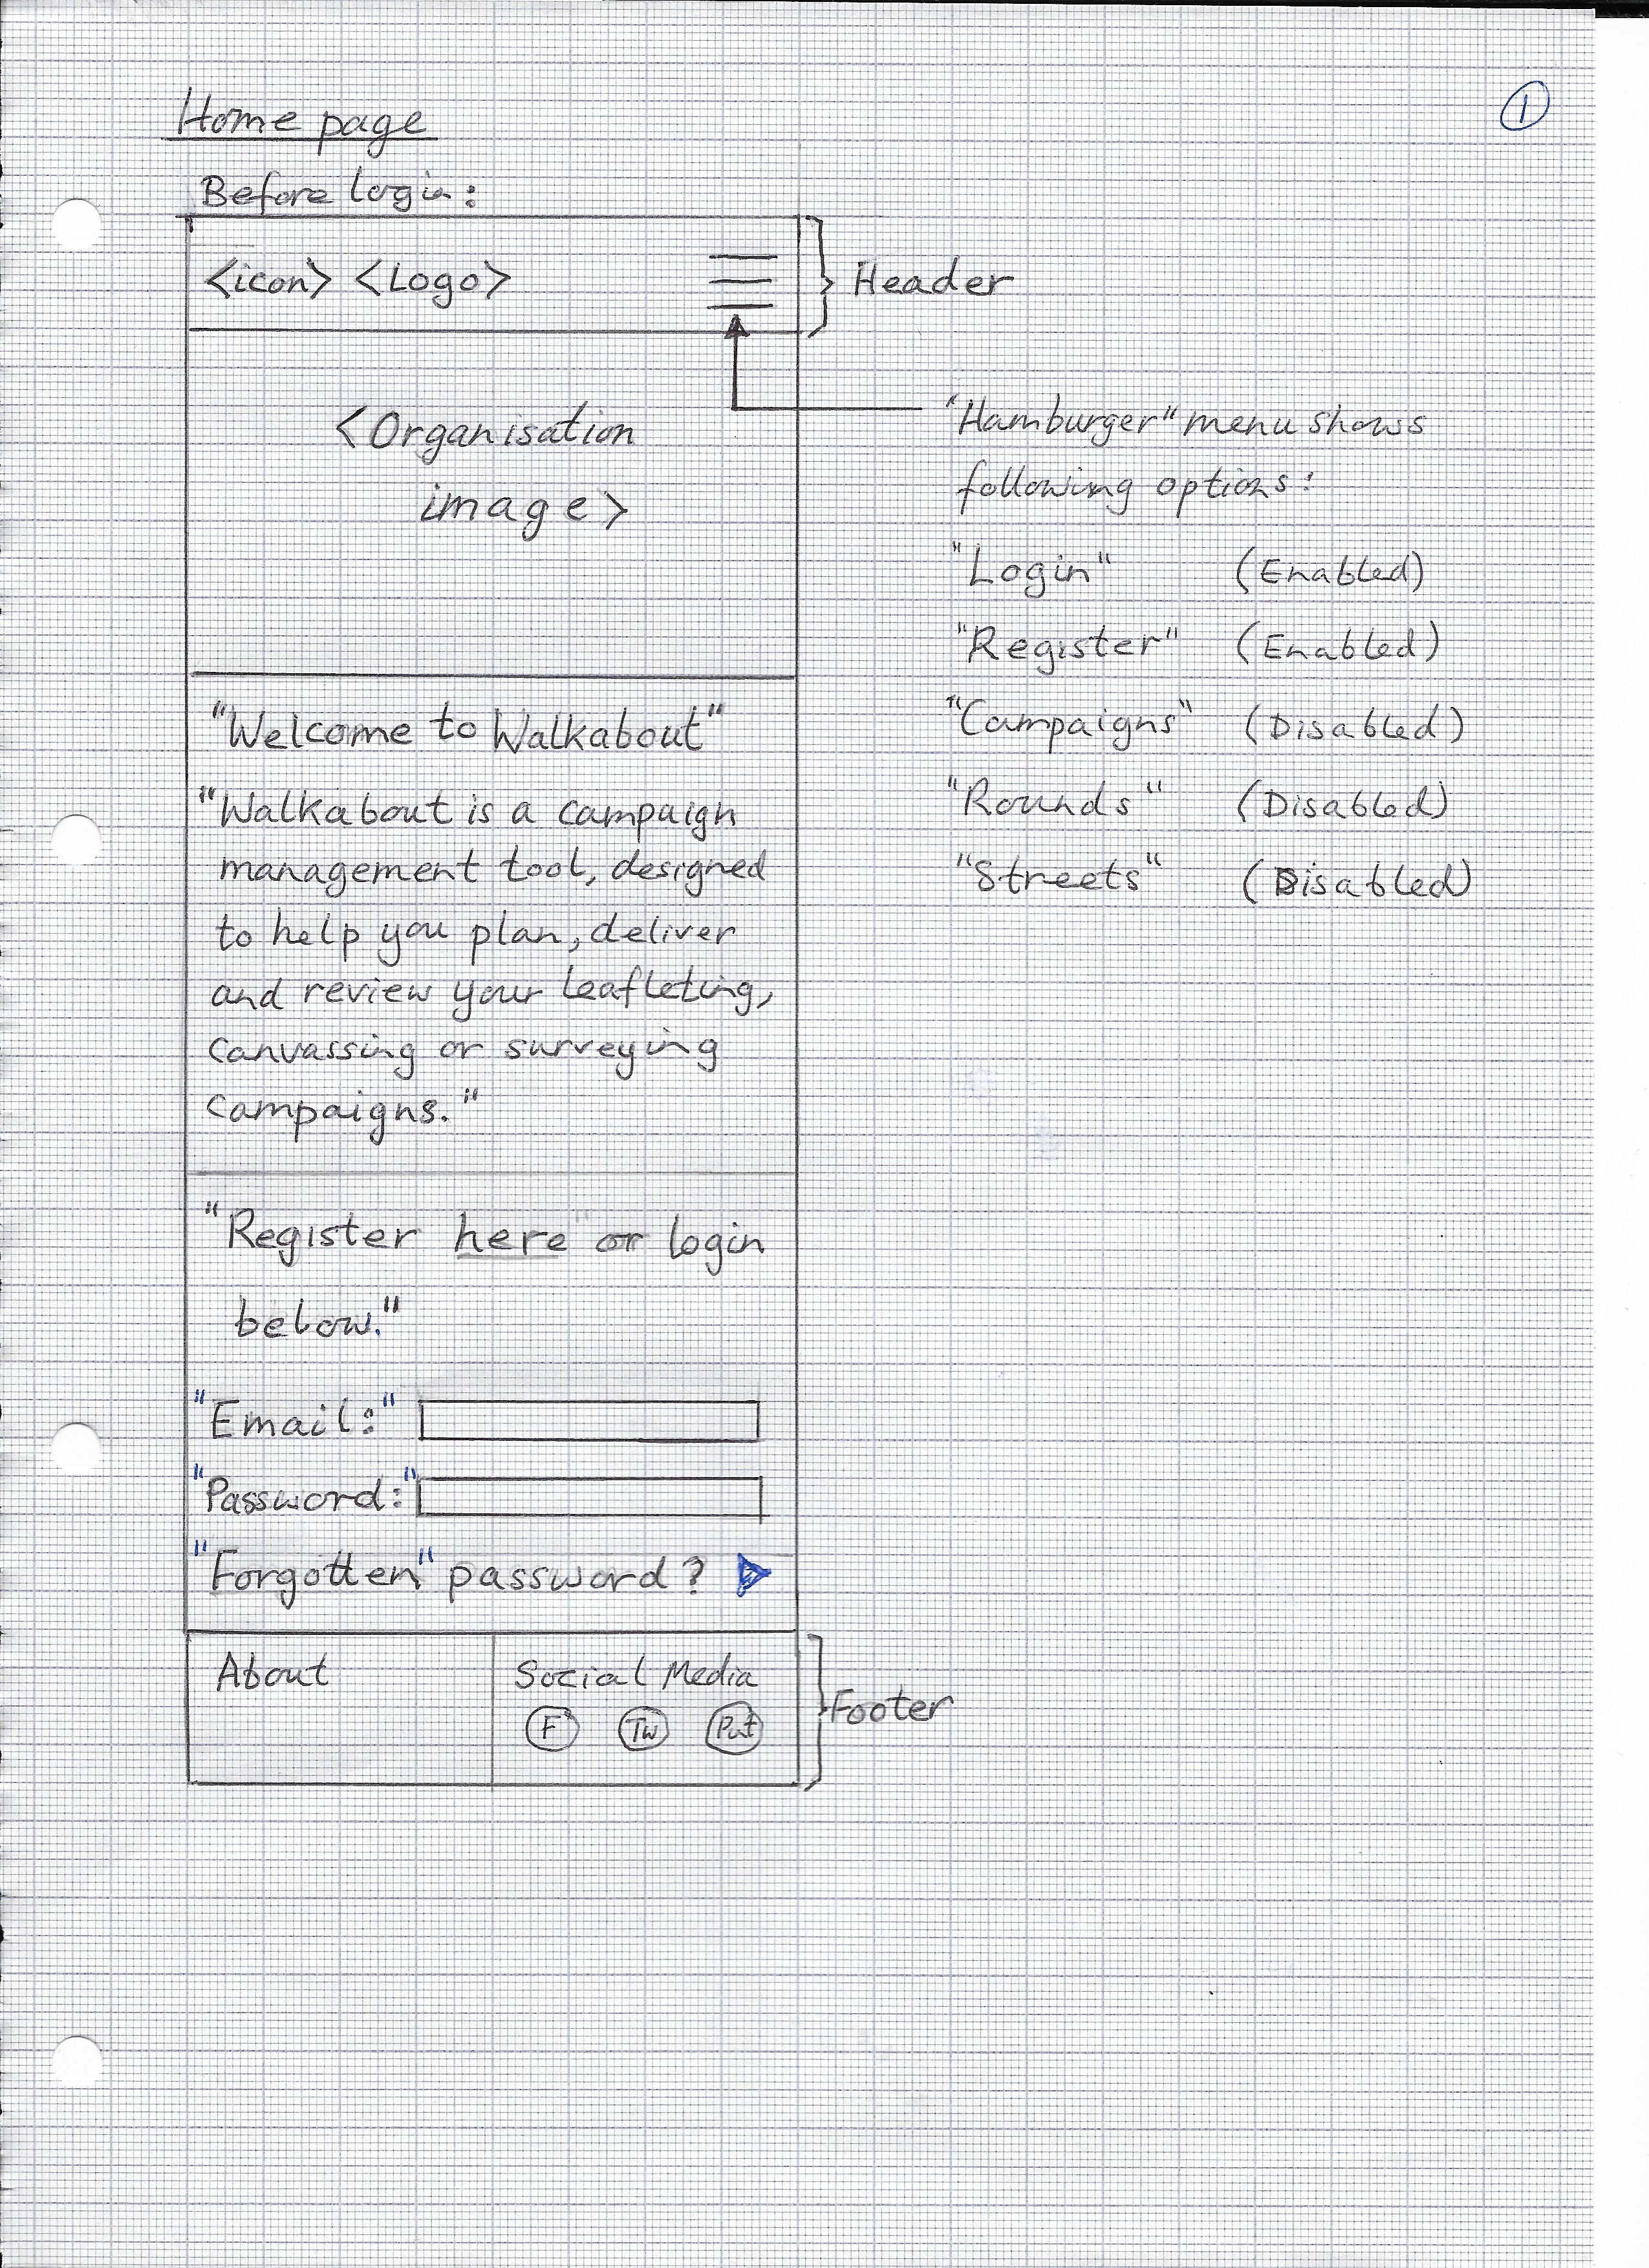 1
Home page
Before login:
<icon> <Logo>
Header
<Organisation
image>
"Hamburger" menu shows
following options:
"Login" (Enabled)
"Register" (Enabled)
"Campaigns" (Disabled)
"Rounds" (Disabled)
"Streets" (Disabled)
"Welcome to Walkabout"
"Walkabout is a campaign
management tool, designed
to help you plan, deliver
and review your leafleting,
canvassing or surveying
campaigns."
"Register here or login
below."
"Email:"
"Password:"
"Forgotten" password?
About
Social Media
F Tw
Footer